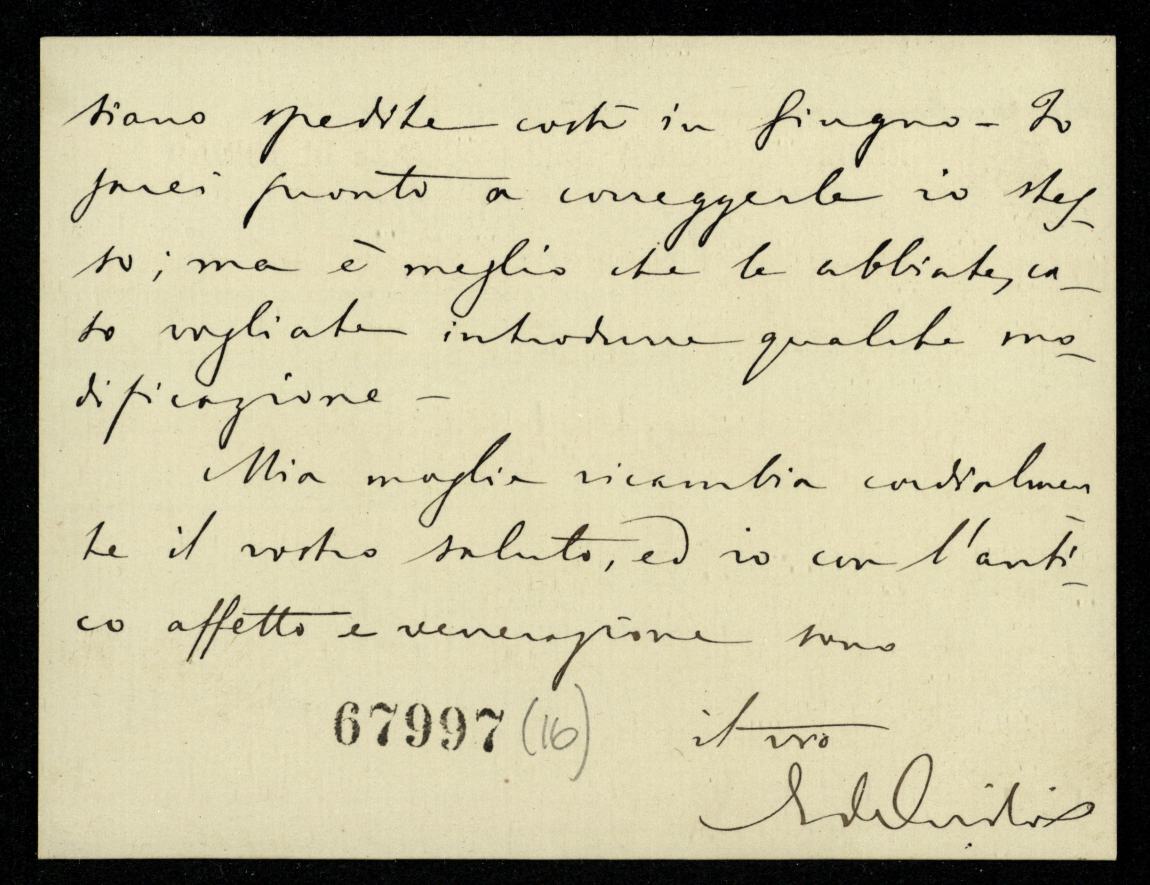 siano spedite costì in Giugno – Io
sarei pronto a correggerle io stes-
so; ma è meglio che le abbiate, ca-
so vogliate introdurre qualche mo-
dificazione –
Mia moglie ricambia cordialmen
te il vostro saluto, ed io con l'anti-
co affetto e venerazione sono
67997 (16)
il vro